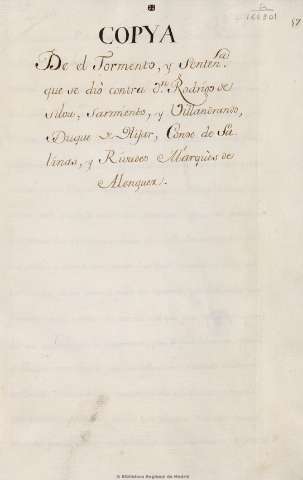 ✠
COPYA
De el Tormento, y Sentenª
que se diò contra Dn. Rodrigo de
silva, Sarmiento, y Villandrando,
Duque de Hijar, Conde de Sa-
linas, y Rivadeo Marquès de
Alenquer.
© Biblioteca Regional de Madrid